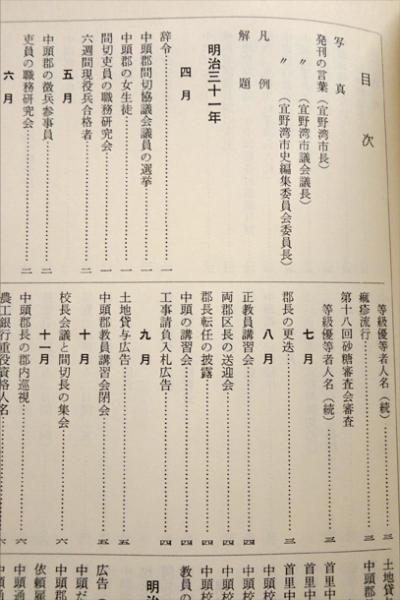 目次
写真
発刊の言葉(宜野湾市長)
〃(宜野湾市議会議長)
〃(宜野湾市史編集委員会委員長)
凡例
解題
明治三十一年
四月
辞令……一
中頭郡間切協議会議員の選挙……一
中頭郡の女生徒……一
間切吏員の職務研究会……一
六週間現役兵合格者……二
五月
中頭郡の徴兵参事員……二
吏員の職務研究会……二
六月
等級優等者人名(続)……三
癘疹流行……三
第十八回砂糖審査会審査
等級優等者人名(続)……三
七月
郡長の更迭……三
八月
正教員講習会……四
両郡区長の送迎会……四
郡長転任の披露……四
中頭の講習会……四
工事請負入札広告……四
九月
土地貸与広告……五
中頭郡教員講習会閉会……五
十月
校長会議と間切長の集会……六
十一月
中頭郡長の郡内巡視……六
農工銀行重役資格人名……六
土地貸
中頭郡
首里中
首里中
中頭校
中頭校
中頭校
教員の
明治
広告(
中頭だ
依頼届
中頭郡
中頭通